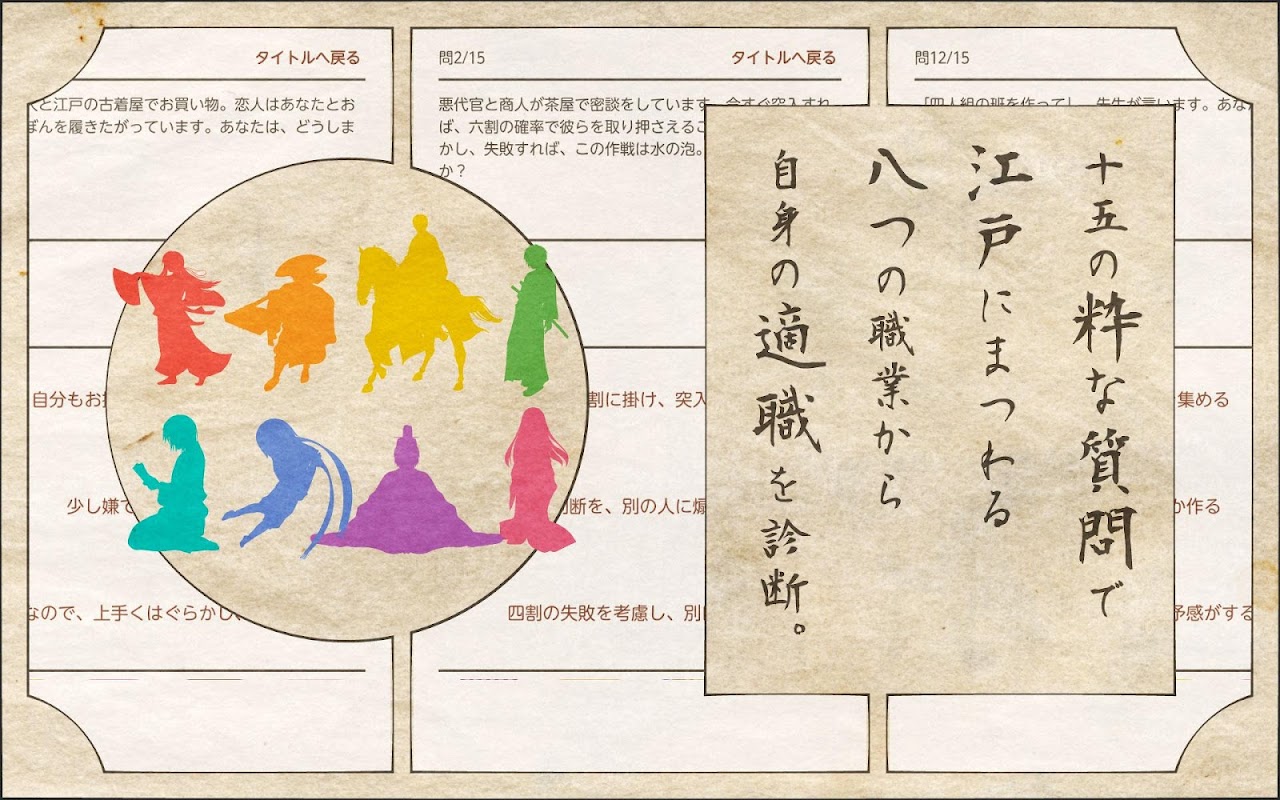 タイトルへ戻る
と江戸の古着屋でお買い物。恋人はあなたとお
ぼんを履きたがっています。あなたは、どうしま
自分もお
少し嫌
なので、上手くはぐらかし、
問2/15
タイトルへ戻る
悪代官と商人が茶屋で密談をしています。今すぐ突入すれ
ば、六割の確率で彼らを取り押さえるこ
かし、失敗すれば、この作戦は水の泡。
か?
割に掛け、突入
断を、別の人に煽
四割の失敗を考慮し、別
問12/15
「四人組の班を作って」、先生が言います。あな
集める
か作る
予感がする
十五の粋な質問で
江戸にまつわる
八つの職業から
自身の適職を診断。